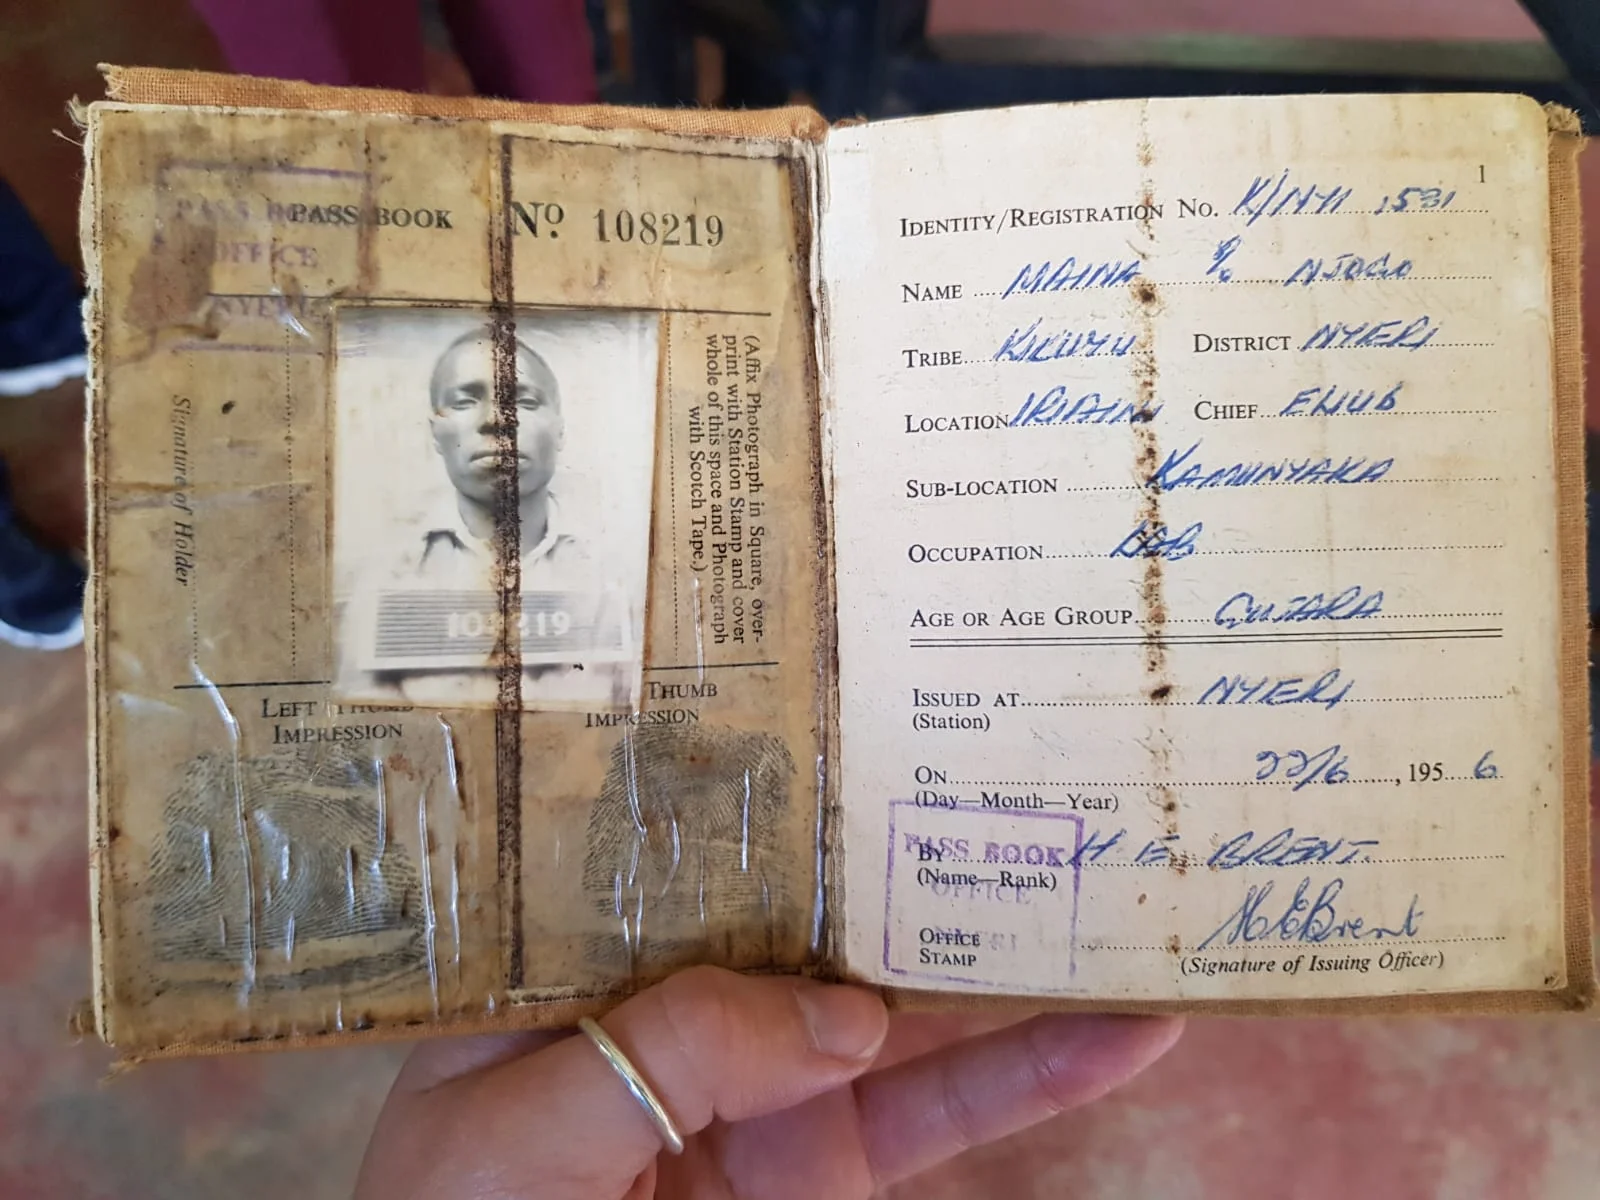 PASS BOOK
OFFICE
NYERI
PASS BOOK No. 108219
Signature of Holder
(Affix Photograph in Square, over-
print with Station Stamp and cover
whole of this space and Photograph
with Scotch Tape.)
108219
LEFT THUMB
IMPRESSION
THUMB
IMPRESSION
1
IDENTITY/REGISTRATION No. K/NYI 1531
NAME MAINA S/O NJOGO
TRIBE KIKUYU DISTRICT NYERI
LOCATION IRIAINI CHIEF ELIUB
SUB-LOCATION KAMUNYAKA
OCCUPATION
AGE OR AGE GROUP
ISSUED AT NYERI
(Station)
ON 22/6, 1956
(Day—Month—Year)
BY H. E. BRENT.
(Name—Rank)
PASS BOOK
OFFICE
NYERI
OFFICE
STAMP
H E Brent
(Signature of Issuing Officer)